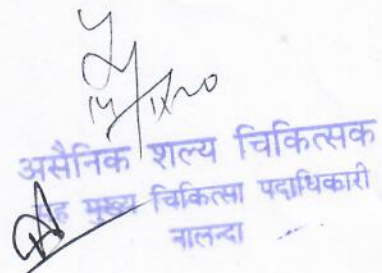 असैनिक शल्य चिकित्सक
सह मुख्य चिकित्सा पदाधिकारी
नालन्दा